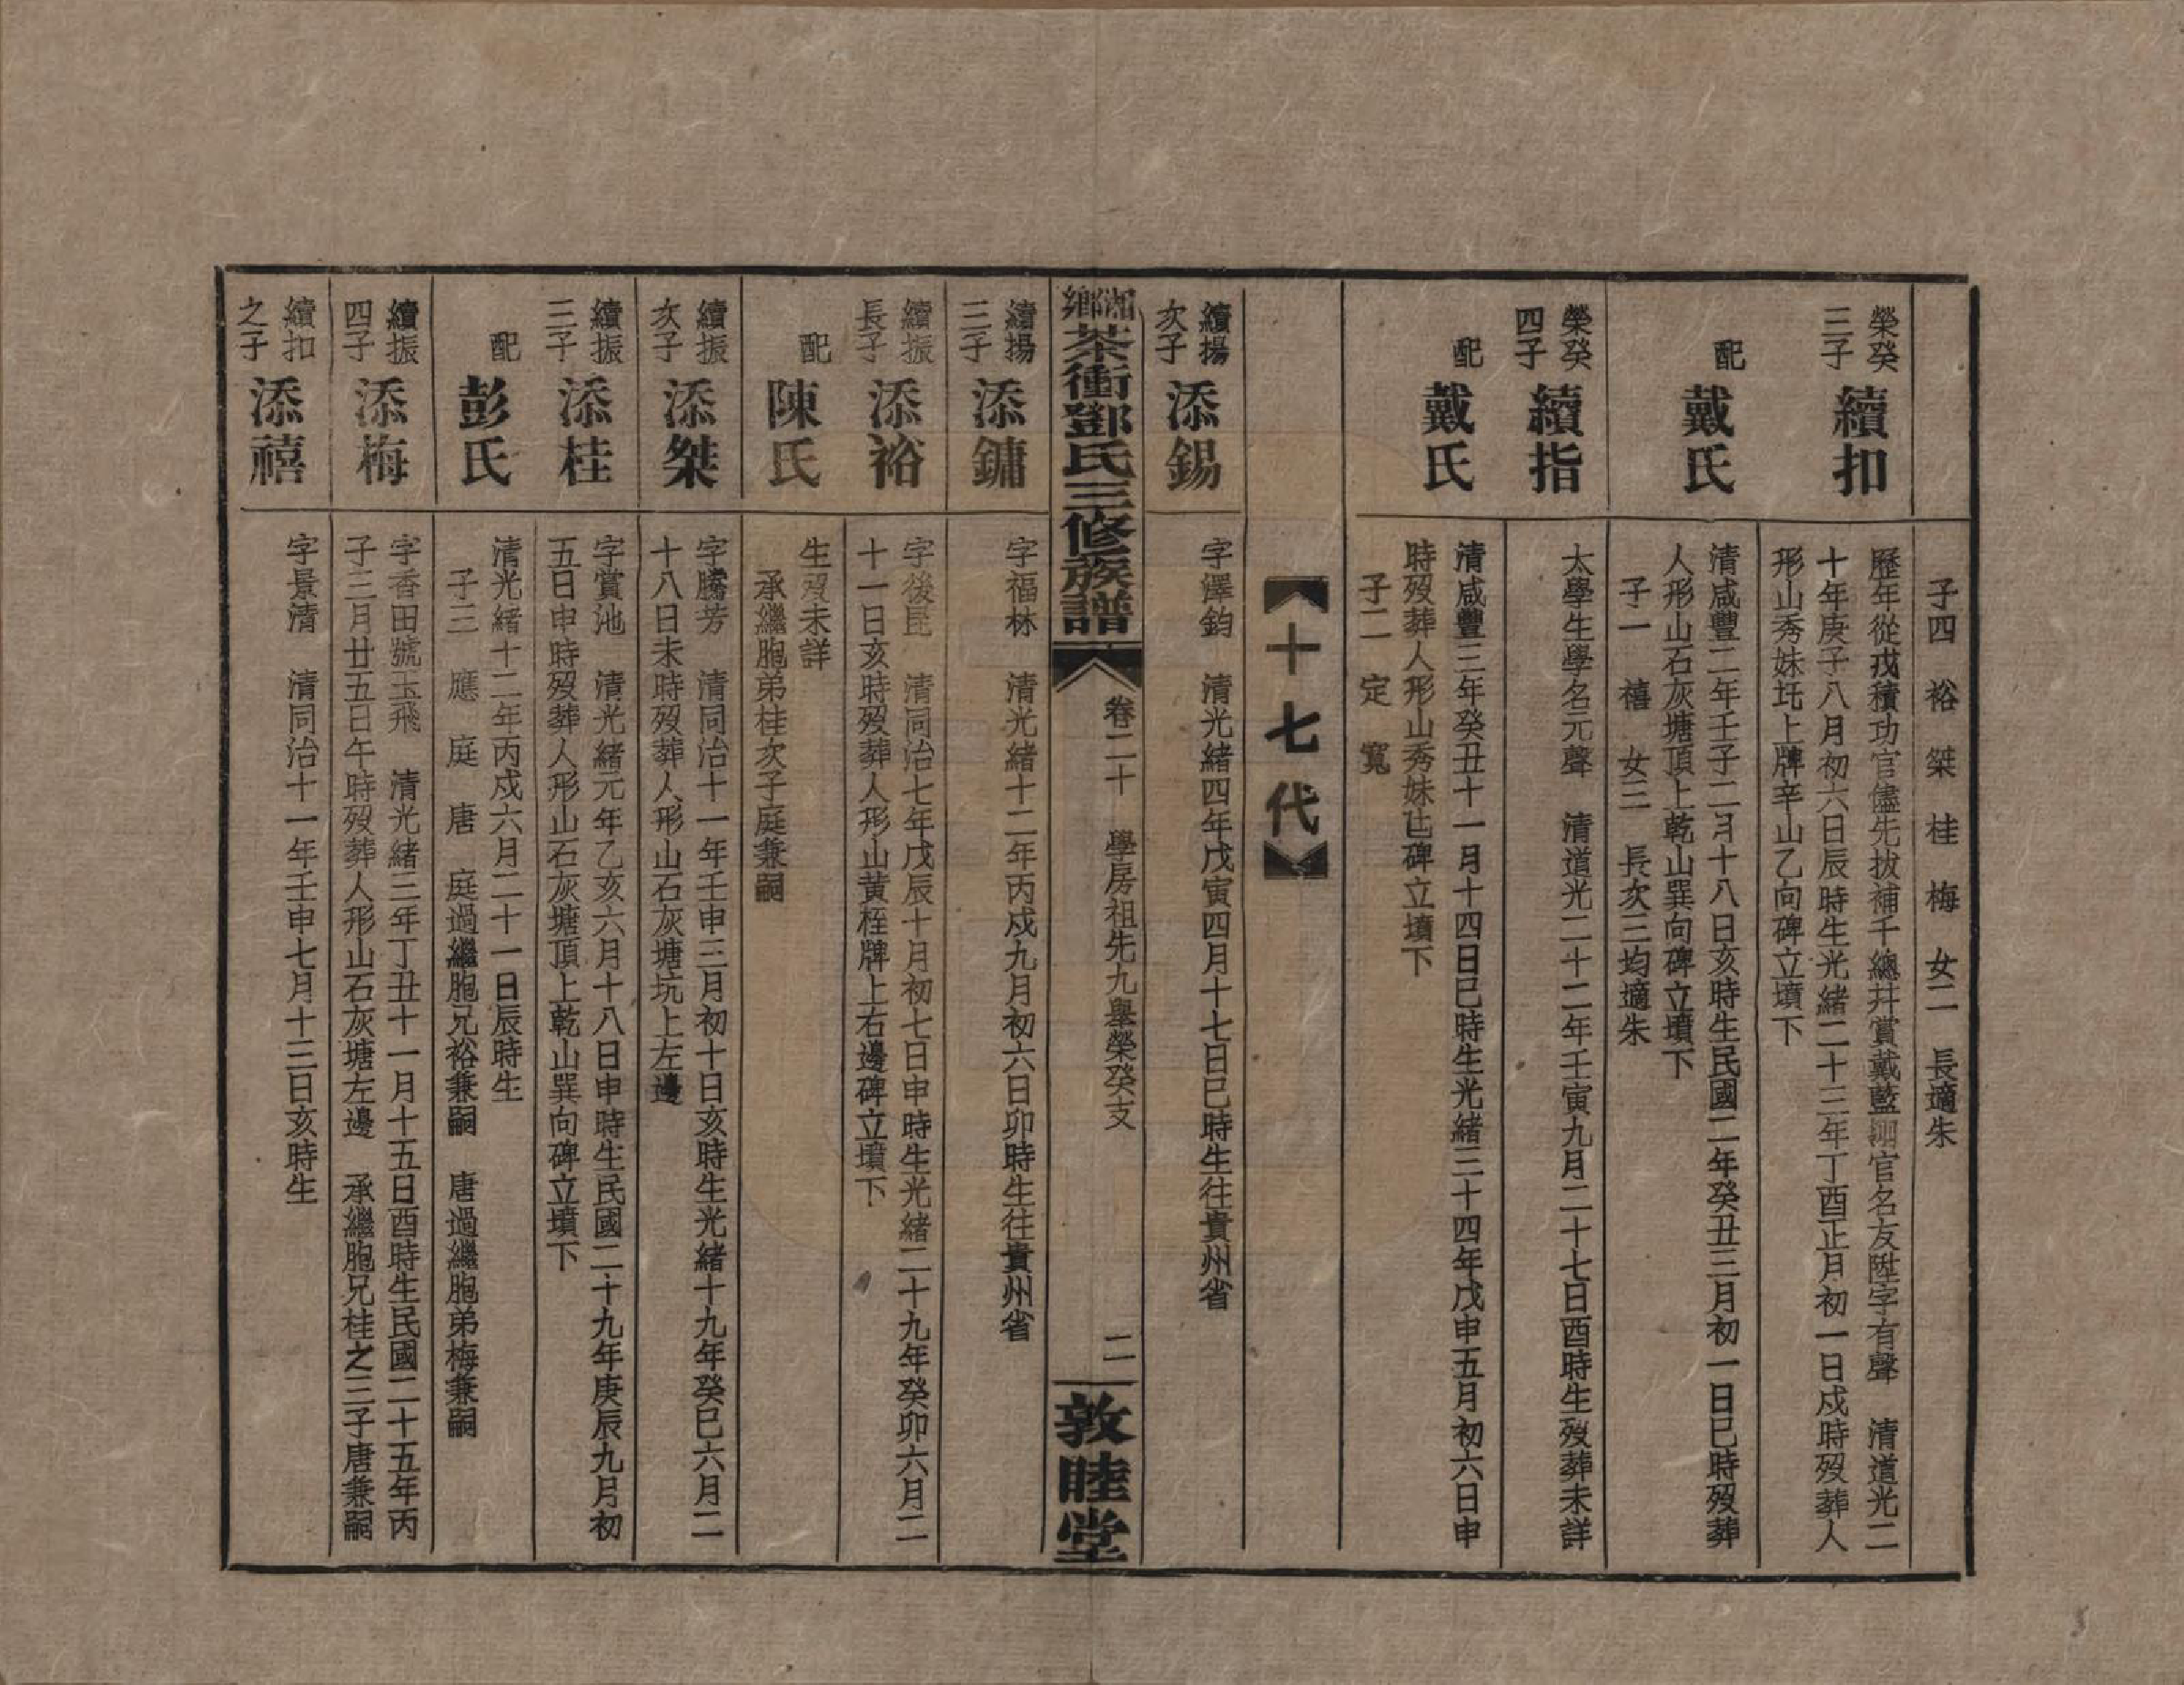 子四　裕　桀　桂　梅　女二　長適朱
榮癸
三子
續扣
歷年從戎積功官儘先拔補千總并賞戴藍翎官名友陞字有聲　清道光二
十年庚子八月初六日辰時生光緒二十三年丁酉正月初一日戍時歿葬人
形山秀妹圫上牌辛山乙向碑立墳下
配
戴氏
清咸豐二年壬子二月十八日亥時生民國二年癸丑三月初一日巳時歿葬
人形山石灰塘頂上乾山巽向碑立墳下
子一　禧　女三　長次三均適朱
榮癸
四子
續指
太學生學名元聲　清道光二十二年壬寅九月二十七日酉時生歿葬未詳
配
戴氏
清咸豐三年癸丑十一月十四日巳時生光緒三十四年戊申五月初六日申
時歿葬人形山秀妹碑立墳下
子二　定　寬
十七代
續揚
次子
添錫
字繹鈞　清光緒四年戊寅四月十七日巳時生往貴州省
湘鄉茶衝鄧氏三修族譜
卷二十　學房祖先九舉榮癸支
二
敦睦堂
續揚
三子
添鏞
字福林　清光緒十二年丙戍九月初六日卯時生往貴州省
續振
長子
添裕
字後昆　清同治七年戊辰十月初七日申時生光緒二十九年癸卯六月二
十一日亥時歿葬人形山黄桎牌上右邊碑立墳下
配
陳氏
生歿未詳
承繼胞弟桂次子庭兼嗣
續振
次子
添桀
字騰芳　清同治十一年壬申三月初十日亥時生光緒十九年癸巳六月二
十八日未時歿葬人形山石灰塘坑上左邊
續振
三子
添桂
字賞池　清光緒元年乙亥六月十八日申時生民國二十九年庚辰九月初
五日申時歿葬人形山石灰塘頂上乾山巽向碑立墳下
配
彭氏
清光緒十二年丙戍六月二十一日辰時生
子三　應　庭　唐　庭過繼胞兄裕兼嗣　唐過繼胞弟梅兼嗣
續振
四子
添梅
字香田號玉飛　清光緒三年丁丑十一月十五日酉時生民國二十五年丙
子三月廿五日午時歿葬人形山石灰塘左邊　承繼胞兄桂之三子唐兼嗣
續扣
之子
添禧
字景清　清同治十一年壬申七月十三日亥時生